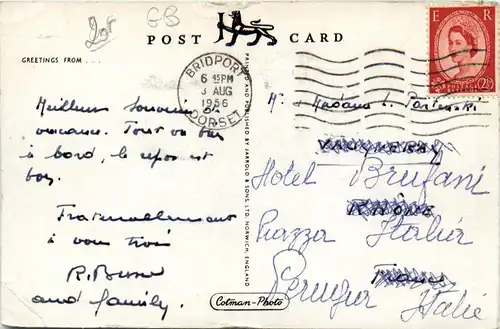 20f
GB
POST CARD
GREETINGS FROM . . .
BRIDPORT
6 45PM
3 AUG
1956
DORSET
E R
POSTAGE
2½
Meilleurs souvenirs de
vacances. Tout va bien
à bord, le repos est
bon.
Fraternellement
à vous trois
R.
and family.
PRINTED AND PUBLISHED BY JARROLD & SONS, LTD. NORWICH, ENGLAND
Cotman-Photo
Mr. Madame L.
VAUGNERAY
Hotel Brufani
RHÔNE
Piazza Italia
France
Perugia Italie